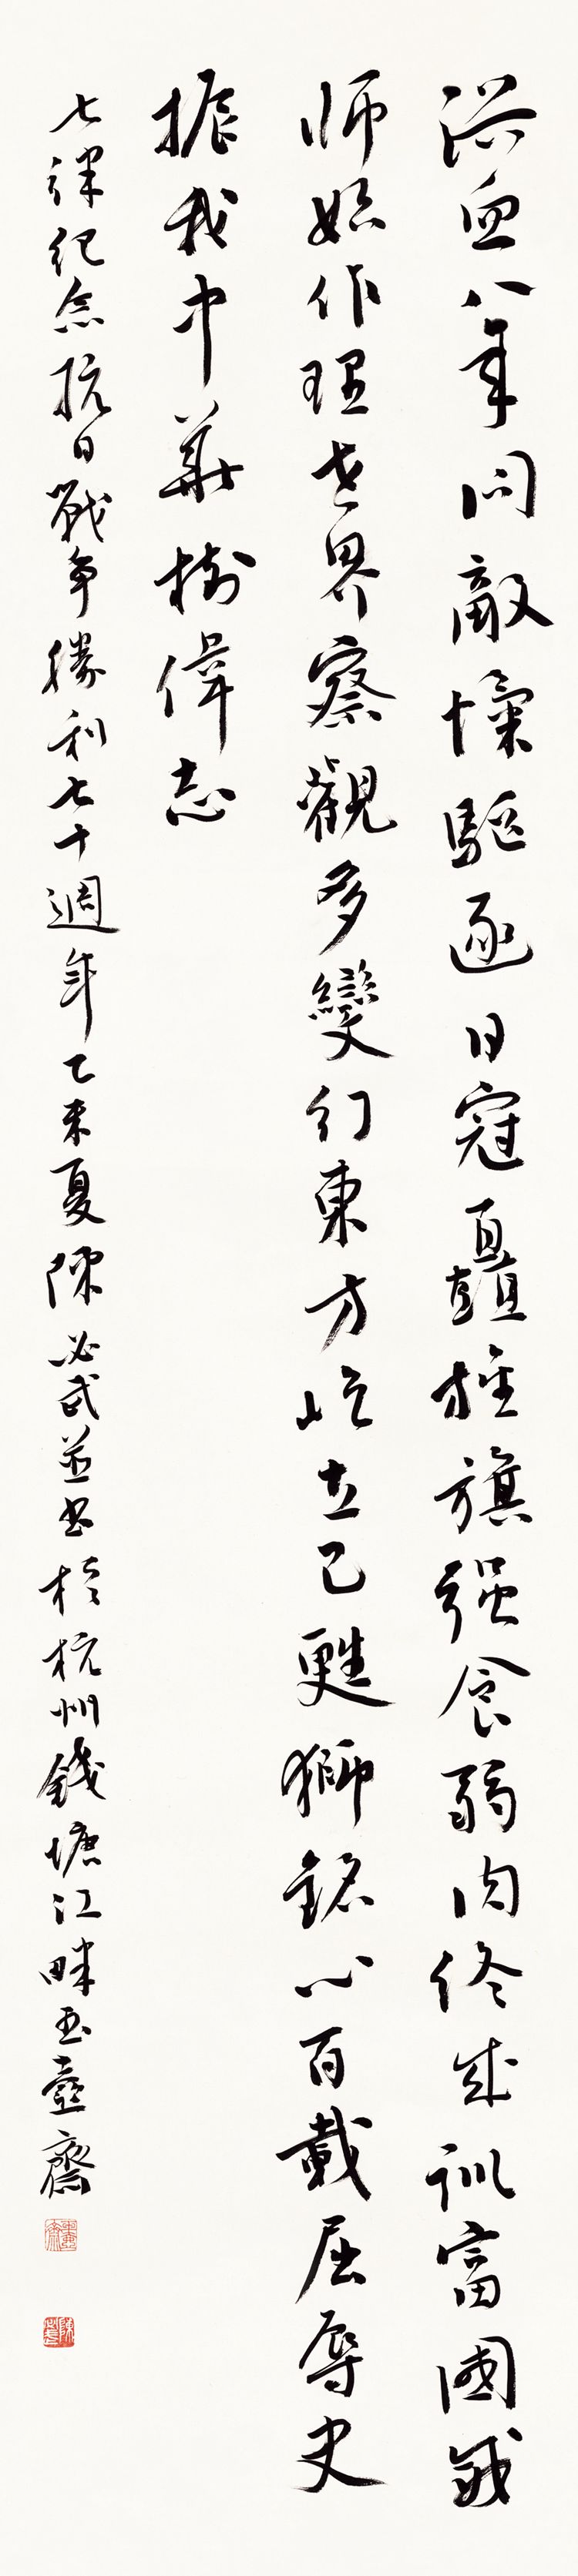 浴血八年同敵愾驅逐日寇矗旌旗强食弱肉終成訓富國
師始作理世界察觀多變幻東方屹立已甦獅銘心百載屈辱史
振我中華樹偉志
七律紀念抗日戰争勝利七十週年乙未夏陳必武並書於杭州錢塘江畔玉壺齋